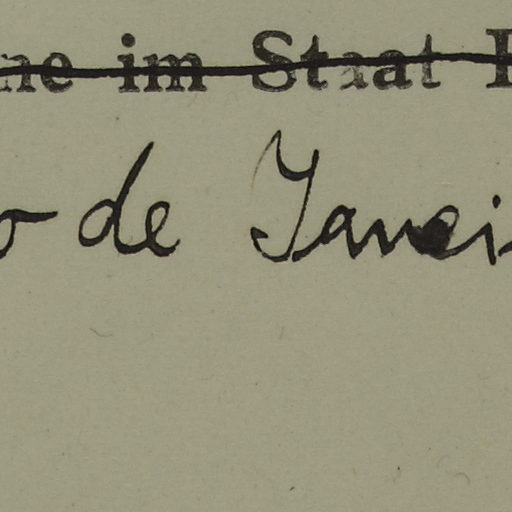 ne im Staat
o de Janei